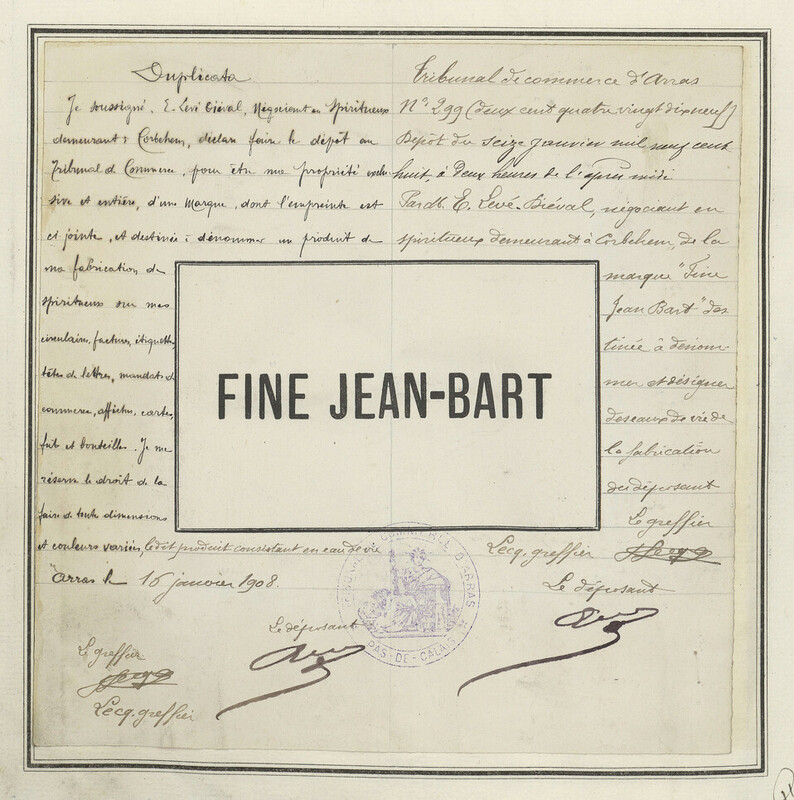 Duplicata
Je soussigné, E. Levé Biéval, Négociant en Spiritueux
demeurant à Corbehem, déclare faire le dépôt au
Tribunal de Commerce, pour être ma propriété exclu-
sive et entière, d'une Marque, dont l'empreinte est
ci jointe, et destinée à dénommer un produit de
ma fabrication de
spiritueux sur mes
circulaires, factures, étiquettes,
têtes de lettres, mandats de
commerce, affiches, cartes,
fûts et bouteilles. Je me
réserve le droit de la
faire de toutes dimensions
et couleurs variées, le dit produit consistant en eau de vie
Arras le 16 janvier 1908.
Le déposant
Le greffier
Lecq. greffier
Tribunal de commerce d'Arras
N° 299 (deux cent quatre vingt dix neuf)
Dépôt du seize janvier mil neuf cent
huit, à deux heures de l'après midi
Par M. E. Levé-Biéval, négociant en
spiritueux demeurant à Corbehem, de la
marque "Fine
Jean Bart" des
tinée à dénom-
mer et désigner
des eaux de vie de
la fabrication
du déposant
Le greffier
Lecq. greffier
Le déposant
FINE JEAN-BART
TRIBUNAL DE COMMERCE D'ARRAS
PAS-DE-CALAIS